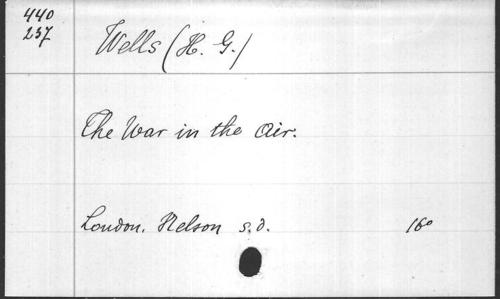 440
237
Wells (H. G.)
The War in the Air.
London, Nelson s. d. 16°